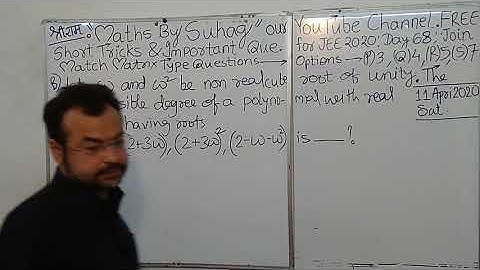 श्रीराम: "Maths By Suhag" our YouTube Channel. FREE
Short Tricks & Important Que. for JEE 2020; Day 68; Join
Match Matrix Type Questions → Options → (P)3, (Q)4, (R)5(S)7
B) ω and ω² be non real cube root of unity. The
degree of a polynomial with real
having roots
2+3ω), (2+3ω)², (2-ω-ω²) is ___?
11 Apri 2020
Sat.